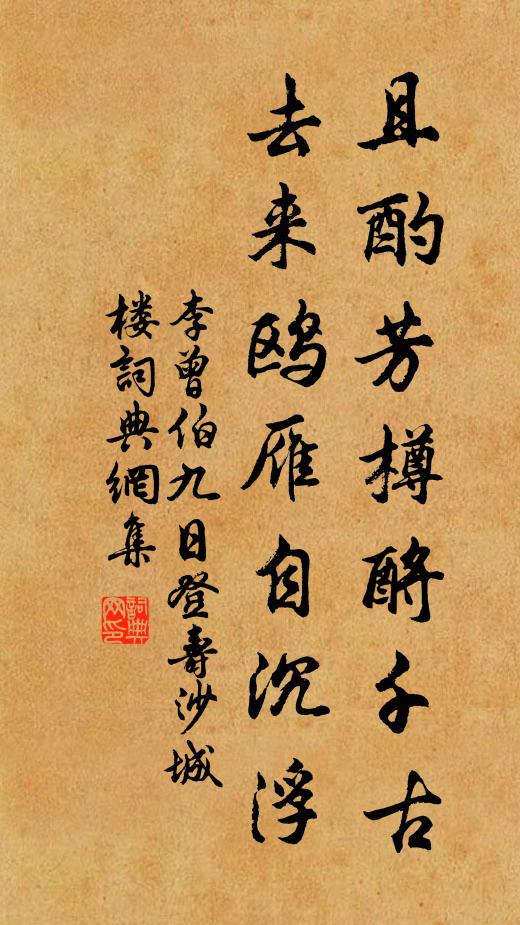 且酌芳樽酹千古
去来鸥雁自沉浮
李曾伯九日登寿沙城
楼詞典網集
詞典网印